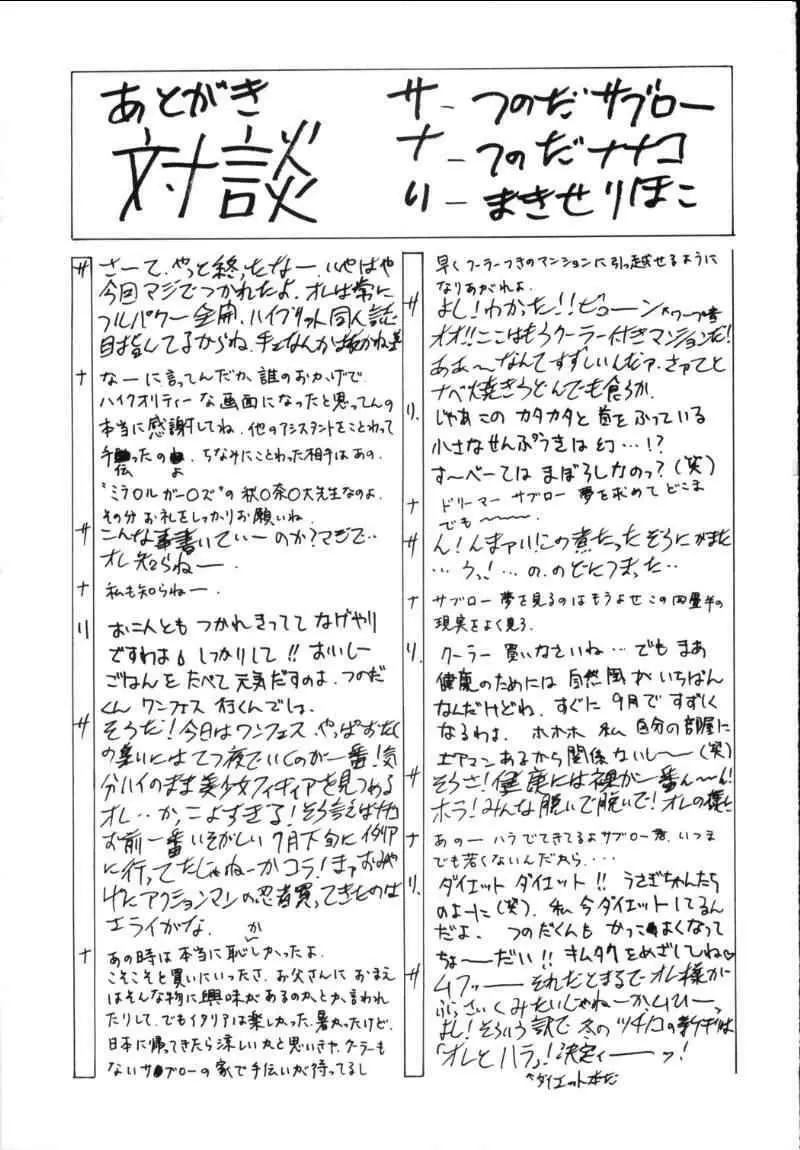 あとがき
対談
サ－つのだサブロー
ナ－つのだナナコ
り－まきせりほこ
サ さーて、やっと終ったなー、いやはや
今回マジでつかれたよ、オレは常に
フルパワー全開、ハイブリット同人誌
目指してるからね、手
ナ なーに言ってんだか、誰のおかげで
ハイクオリティーな画面になったと思ってんの
本当に感謝してね、他のアシスタントをことわって
手伝ったのよ、ちなみにことわった相手はあの、
"ミラ○ルガー○ズ"の秋○奈○大先生なのよ、
その分お礼をしっかりお願いね、
サ こんな事書いていーのか?マジで‥
オレ知らねー、
ナ 私も知らねー、
り お二人とも つかれきってて なげやり
ですわよ しっかりして!!おいしー
ごはんをたべて元気だすのよ、つのだ
くん ワンフェス 行くんでしょ、
サ そうだ!今日はワンフェス、やっぱおたく
の集いにはてつ夜でいくのが一番!気
分ハイのまま美少女フィギィアを見つめる
オレ‥かっこよすぎる!そう言えばナナコ
お前一番いそがしい7月下旬にイタリア
に行ってたじゃねーかコラ!まァおみや
げにアクションマンの忍者買ってきたのは
エライがな、
ナ あの時は本当に恥しかったよ、
か
こそこそと買いにいったさ、お父さんにおまえ
はそんな物に興味があるのかとか、言われ
たりして、でもイタリアは楽しかった、暑かったけど、
日本に帰ってきたら涼しいかと思いきや、クーラーも
ないサブローの家で手伝いが待ってるし
早くクーラーつきのマンションに引っ越せるように
なりあがれよ、
サ よし!わかった!!ビューン *ワープ音
オオ!!ここはもうクーラー付きマンションだ!
ああ〜なんてすずしいんだァ、さァてと
ナベ焼きうどんでも食うか、
り、 じゃあこの カタカタと首をふっている
小さなせんぷうきは幻…!?
す〜べーては まぼろしなのっ?(笑)
ナ ドリーマー サブロー 夢を求めてどこま
でも〜〜〜、
サ ん!んまァい!この煮たったぞうにがまた
‥うっ!…の、のどにつまった‥
ナ サブロー夢を見るのはもうよせ この四畳半の
現実をよく見ろ、
り、 クーラー 買いなさいね…でも まあ
健康のためには 自然風がいちばん
なんだけどね、すぐに 9月ですずしく
なるわよ、 ホホホ 私 自分の部屋に
エアマンあるから関係ないし〜(笑)
サ そうさ!健康には裸が一番ん〜ん!
ホラ!みんな脱いで脱いで!オレの様に
ナ あのー ハラでてきてるよサブロー君、いつま
でも若くないんだから、・・・
り、 ダイエット ダイエット!!うさぎちゃんたち
のよーに(笑)、私 今ダイエットしてるん
だよ、 つのだくんも かっこよくなって
ちょーだい!!キムタクをめざしてね♡
サ ムフッーーそれだとまるでオレ様が
ぶさいくみたいじゃねーか、ムひーっ
よし!そういう訳で冬のツチノコの新刊は
「オレとハラ」!決定ィーーッ!
^ダイエット本だ